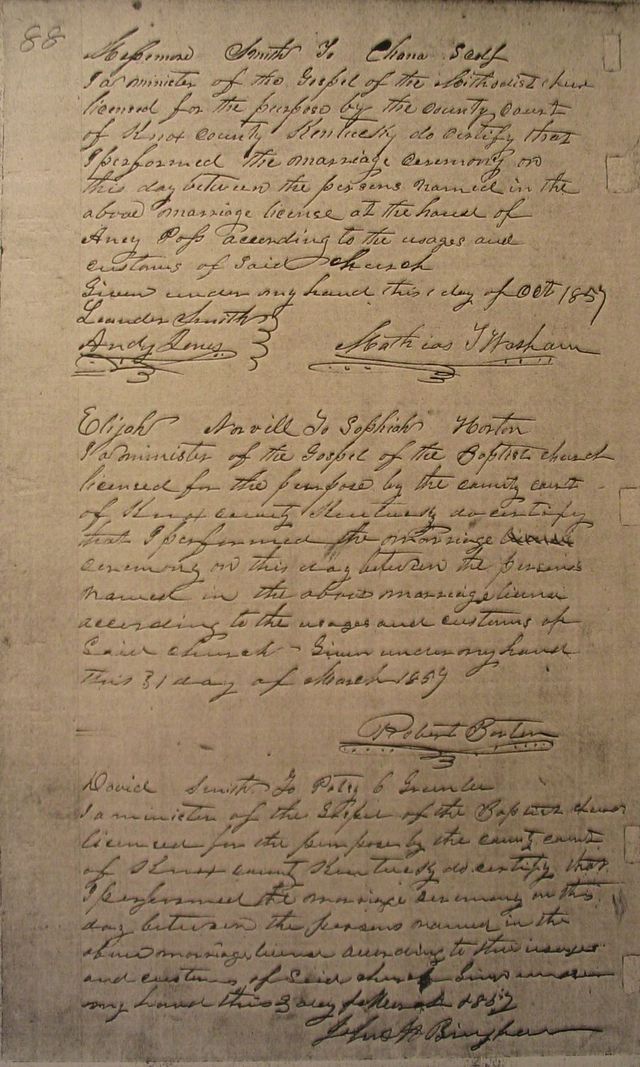 88
Smith To Chana Self
I a minister of the Gospel of the Methodist chur
licensed for the purpose by the county court
of Knox county Kentucky do certify that
I performed the marriage ceremony on
this day between the persons named in the
above marriage license at the house of
Ancy Poss according to the usages and
customs of Said church
Given under my hand this 1 day of Oct 1857
Leander Smith
Andy Jones Mathias T Washam
Elijah Norvill To Sophiah Horton
I a minister of the Gospel of the Baptist church
licensed for the purpose by the county court
of Knox county Kentucky do certify
that I performed the marriage
ceremony on this day between the persons
named in the above marriage license
according to the usages and customs of
Said church Given under my hand
this 31 day of March 1857
Robert Boston
David Smith To Patsy
I a minister of the Gospel of the Baptist
licensed for the purpose by the county court
of Knox county Kentucky do certify that
I performed the marriage ceremony on this
day between the persons named in the
above marriage license according to the usages
and customs of Said church Given under
my hand this 3 day of March 1857
John W Bingham